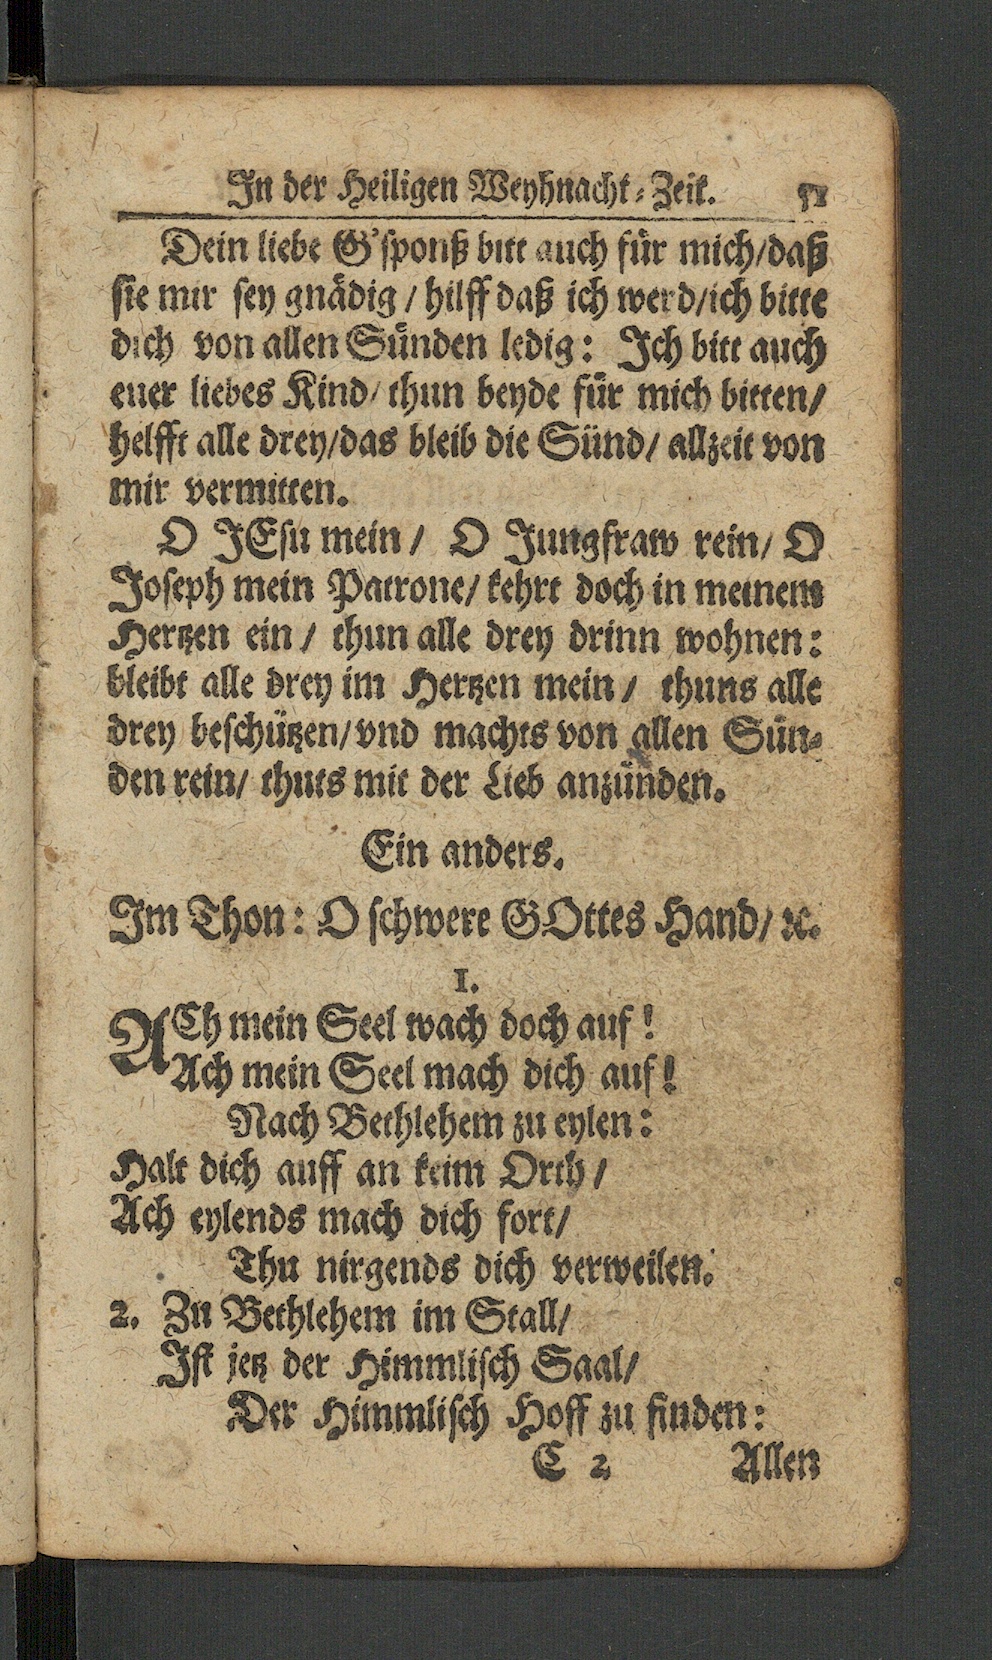 In der Heiligen Weyhnacht-Zeit. 51
Dein liebe G'sponß bitt auch für mich/daß
sie mir sey gnädig/hilff daß ich werd/ich bitte
dich von allen Sünden ledig: Ich bitt auch
euer liebes Kind/thun beyde für mich bitten/
helfft alle drey/das bleib die Sünd/allzeit von
mir vermitten.
O JEsu mein/ O Jungfraw rein/ O
Joseph mein Patrone/kehrt doch in meinem
Hertzen ein/ thun alle drey drinn wohnen:
bleibt alle drey im Hertzen mein/ thuns alle
drey beschützen/vnd machts von allen Sün-
den rein/ thuts mit der Lieb anzünden.
Ein anders.
Im Thon: O schwere GOttes Hand/ ꝛc.
1.
ACh mein Seel wach doch auf!
Ach mein Seel mach dich auf!
Nach Bethlehem zu eylen:
Halt dich auff an keim Orth/
Ach eylends mach dich fort/
Thu nirgends dich verweilen.
2. Zu Bethlehem im Stall/
Ist jetz der Himmlisch Saal/
Der Himmlisch Hoff zu finden:
C 2 Allen